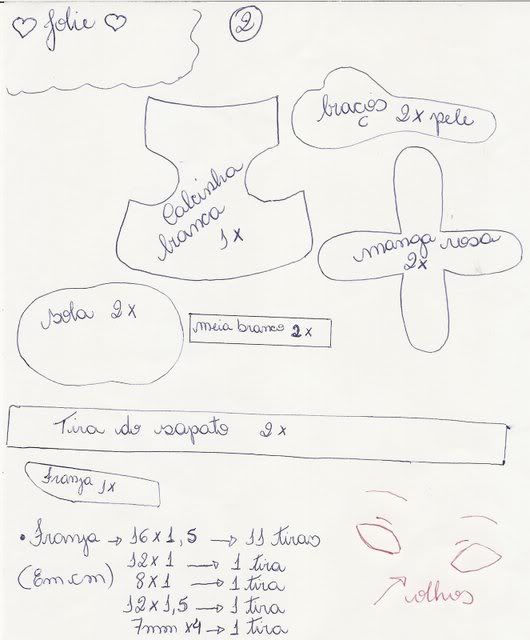 ♡ Jolie ♡
2
braços 2x pele
Calcinha
branca
1x
manga rosa
2x
sola 2x
meia branco 2x
Tira do sapato 2x
Franja 1x
• Franja → 16x1,5 → 11 tiras
12x1 → 1 tira
(Em cm) 8x1 → 1 tira
12x1,5 → 1 tira
7mm x4 → 1 tira
olhos